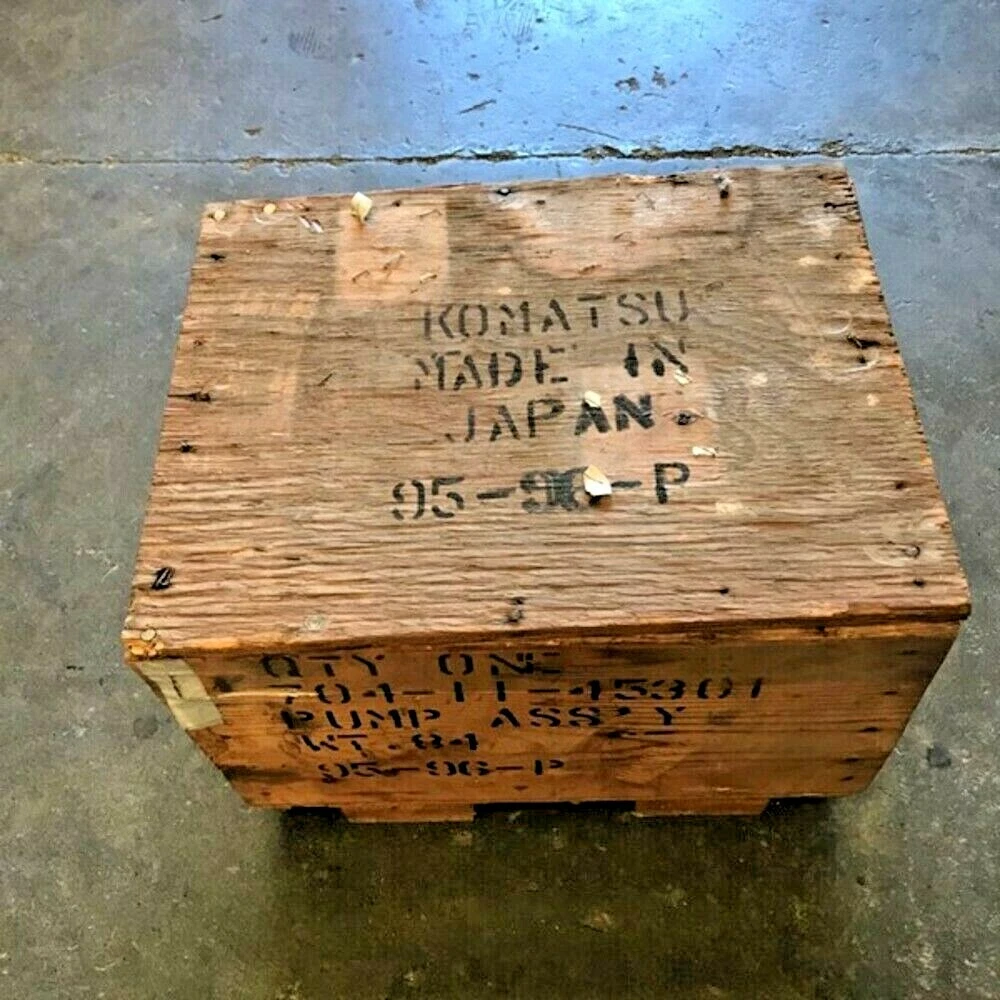 KOMATSU
MADE IN
JAPAN
95-96-P
QTY ONE
704-11-45301
PUMP ASS'Y
WT.84
95-96-P